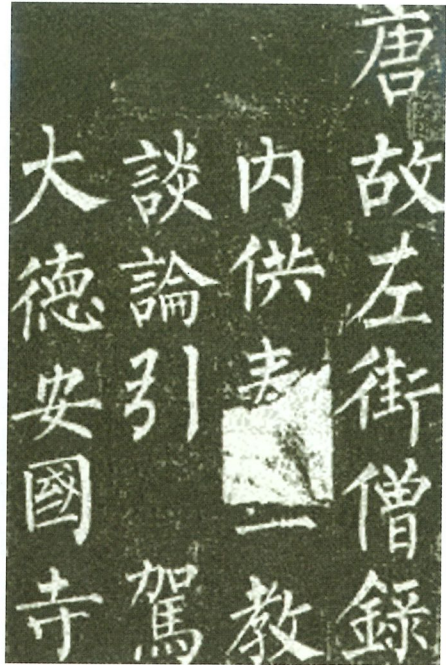 唐故左街僧錄
内供教
談論引駕
大徳安國寺